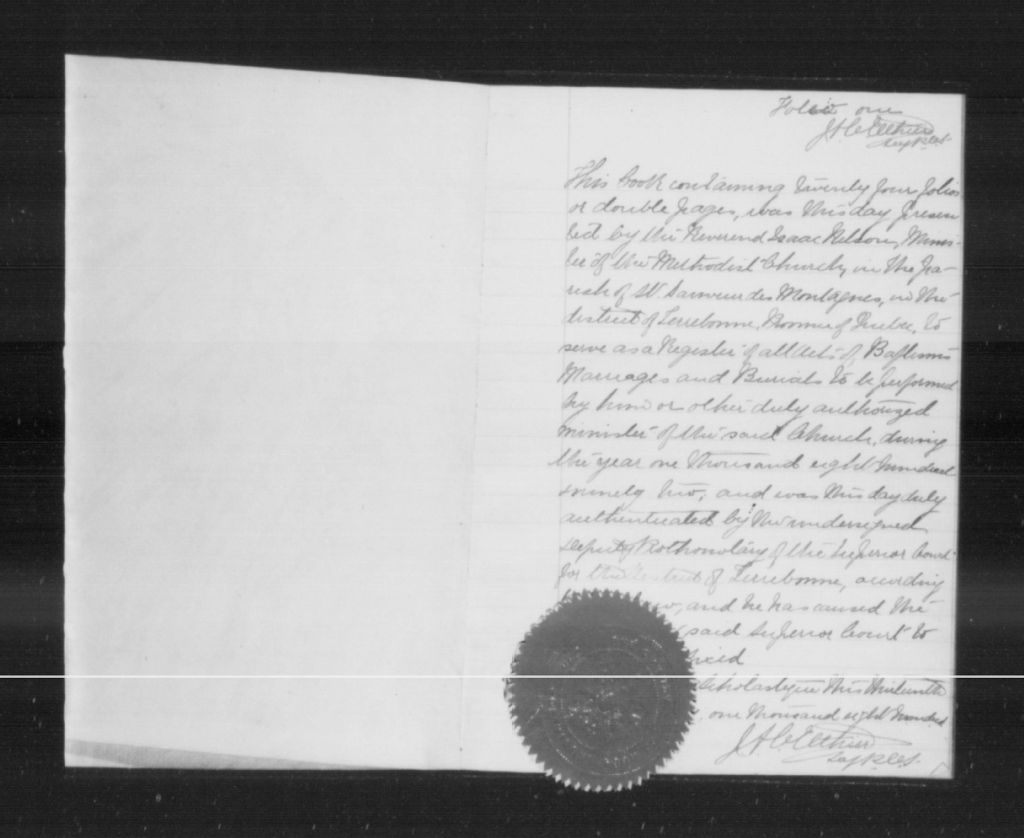 Folio one
Dep. P.C.S.
This book containing twenty four folios
or double pages, was this day presen
ted by the Reverend Isaac Nelson, Minis-
ter of the Methodist Church, in the pa-
rish of St. Sauveur des Montagnes, in the
district of Terrebonne, Province of Quebec, to
serve as a Register of all acts of Baptisms
Marriages and Burials to be performed
by him or other duly authorized
minister of the said Church, during
the year one thousand eight hundred
ninety two, and was this day duly
authenticated by the undersigned
Deputy Prothonotary of the Superior Court
for the District of Terrebonne, according
and he has caused the
said Superior Court to
Scholastique this
, one thousand eight hundred
Dep. P.C.S.